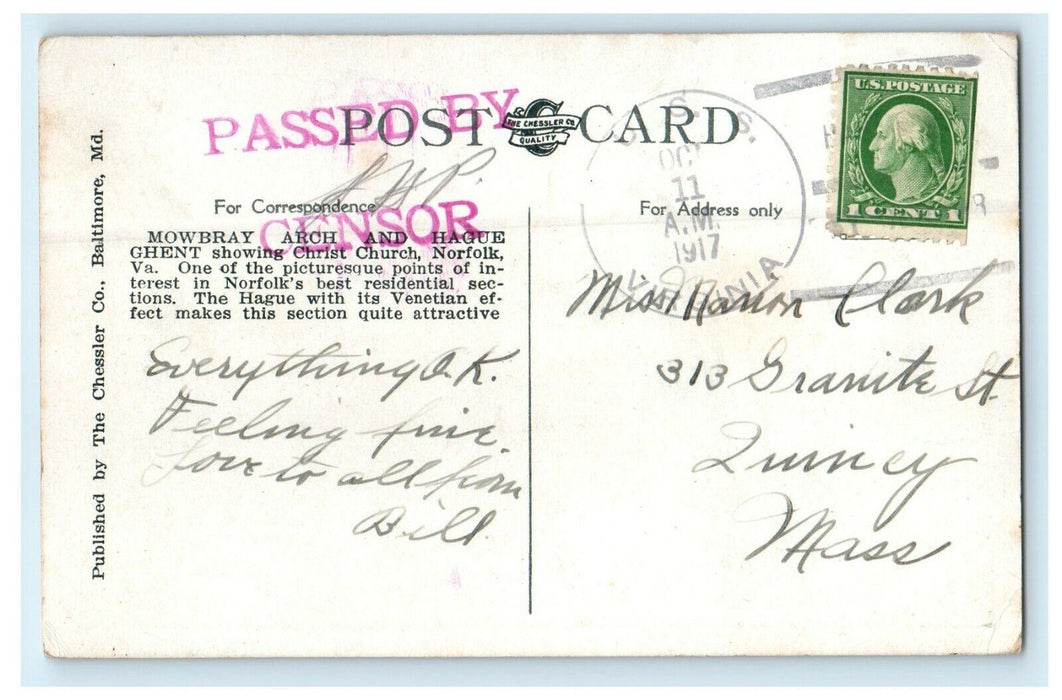 PASSED BY
CENSOR
POST CARD
THE CHESSLER CO.
QUALITY
For Correspondence
For Address only
MOWBRAY ARCH AND HAGUE
GHENT showing Christ Church, Norfolk,
Va. One of the picturesque points of in-
terest in Norfolk's best residential sec-
tions. The Hague with its Venetian ef-
fect makes this section quite attractive
Everything O.K.
Feeling fine
Love to all from
Bill.
Published by The Chessler Co., Baltimore, Md.
U.S. POSTAGE
1 CENT 1
OCT
11
A.M.
1917
Miss Marion Clark
313 Granite St.
Quincy
Mass